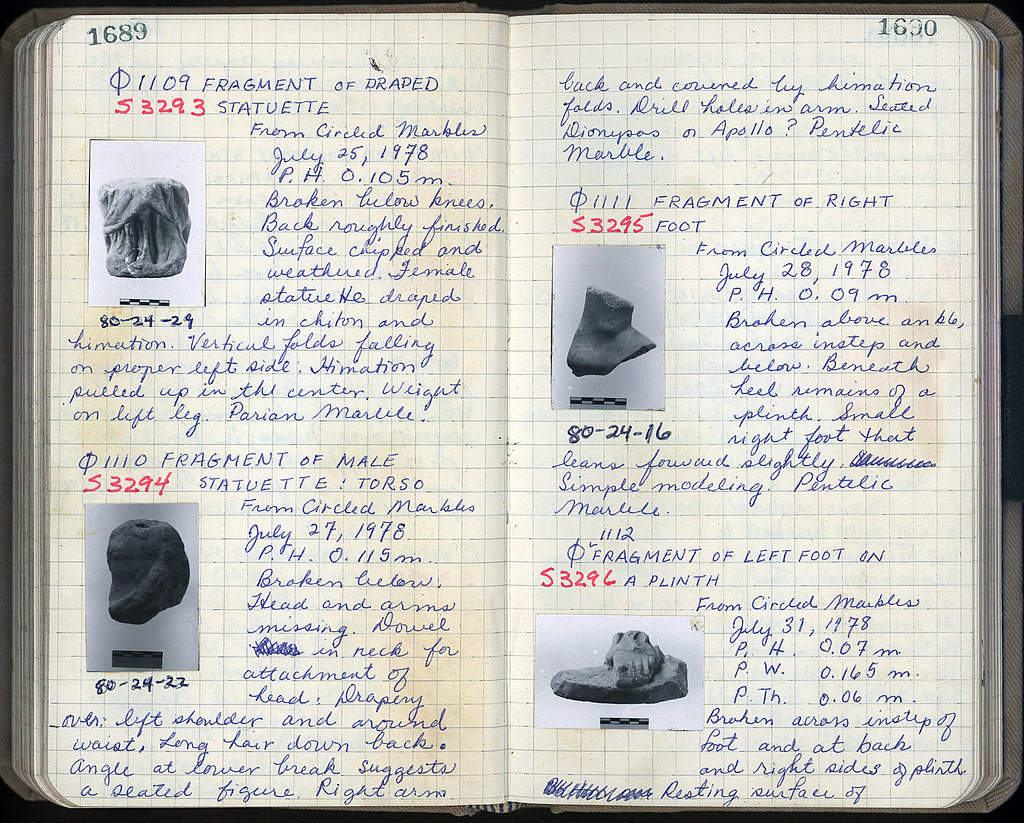 1689
Φ1109 FRAGMENT OF DRAPED
S3293 STATUETTE
From Circled Marbles
July 25, 1978
P. H. 0.105 m.
Broken below knees.
Back roughly finished.
Surface chipped and
weathered. Female
statuette draped
80-24-29
in chiton and
himation. Vertical folds falling
on proper left side. Himation
pulled up in the center. Weight
on left leg. Parian Marble.
Φ1110 FRAGMENT OF MALE
S3294 STATUETTE: TORSO
From Circled Marbles
July 27, 1978.
P. H. 0.115 m.
Broken below.
Head and arms
missing. Dowel
in neck for
attachment of
80-24-22
head: Drapery
over left shoulder and around
waist, Long hair down back.
Angle at lower break suggests
a seated figure. Right arm
1690
back and covered by himation
folds. Drill holes in arm. Seated
Dionysos or Apollo? Pentelic
Marble.
Φ1111 FRAGMENT OF RIGHT
S3295 FOOT
From Circled Marbles
July 28, 1978
P. H. 0.09 m.
Broken above ankle,
across instep and
below. Beneath
heel remains of a
plinth. Small
80-24-16
right foot that
leans forward slightly.
Simple modeling. Pentelic
Marble.
1112
Φ FRAGMENT OF LEFT FOOT ON
S3296 A PLINTH
From Circled Marbles
July 31, 1978
P. H. 0.07 m
P. W. 0.165 m.
P. Th. 0.06 m.
Broken across instep of
foot and at back
and right sides of plinth
Resting surface of